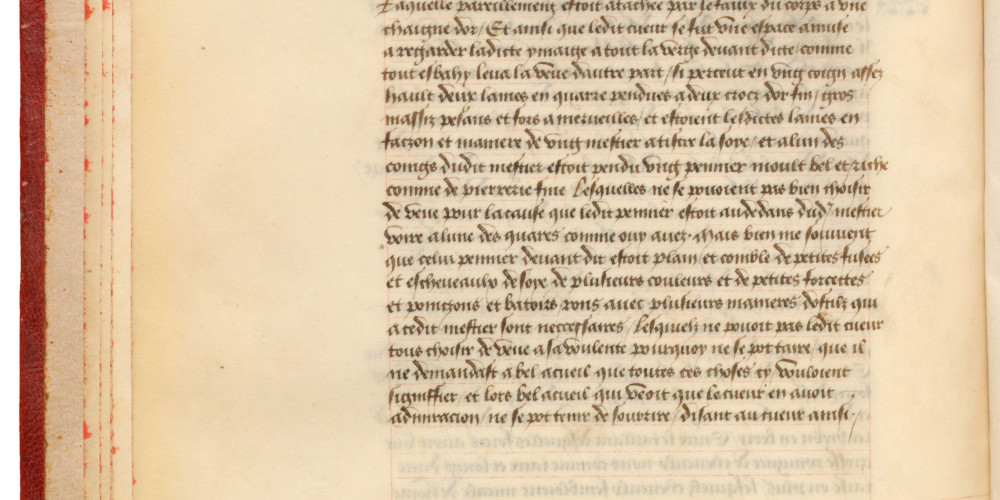 Laquelle pareillement estoit atachee par le faux du corps a une
chaigne dor / Et ainsi que ledit cueur se fut une espace amuse
a regarder ladicte ymaige a tout la verge devant ditte comme
tout esbahy leva la veue dautre part / si perceut en ung coign assez
hault deux lames en quarre pendues a deux crocz dor fin / gros
massiz pesans et fors a merveilles / et estoient lesdictes lames en
faczon et maniere de ung mestier a tistre la soye / et a lun des
coings dudit mestier estoit pendu ung pennier moult bel et riche
comme de pierrerie fine Lesquelles ne se povoient pas bien choisir
de veue pour la cause que ledit pennier estoit audedans dud' mestier
voire a lune des quares comme ouy avez . Mais bien me souvient
que celui pennier devant dit estoit plain et comble de petites fusees
et escheveaulx de soye de plusieurs couleurs et de petites forcettes
et poinczons et batoirs rons avec plusieurs manieres dostilz qui
a cedit mestier sont neccessaires / Lesquelz ne povoit pas ledit cueur
tous choisir de veue a sa voulente pourquoy ne se pot taire / que il
ne demandast a bel acueil que toutes ces choses cy vouloient
signiffier et lors bel acueil qui veoit que le cueur en avoit
admiracion / ne se pot tenir de soubzrire / disant au cueur ainsi .